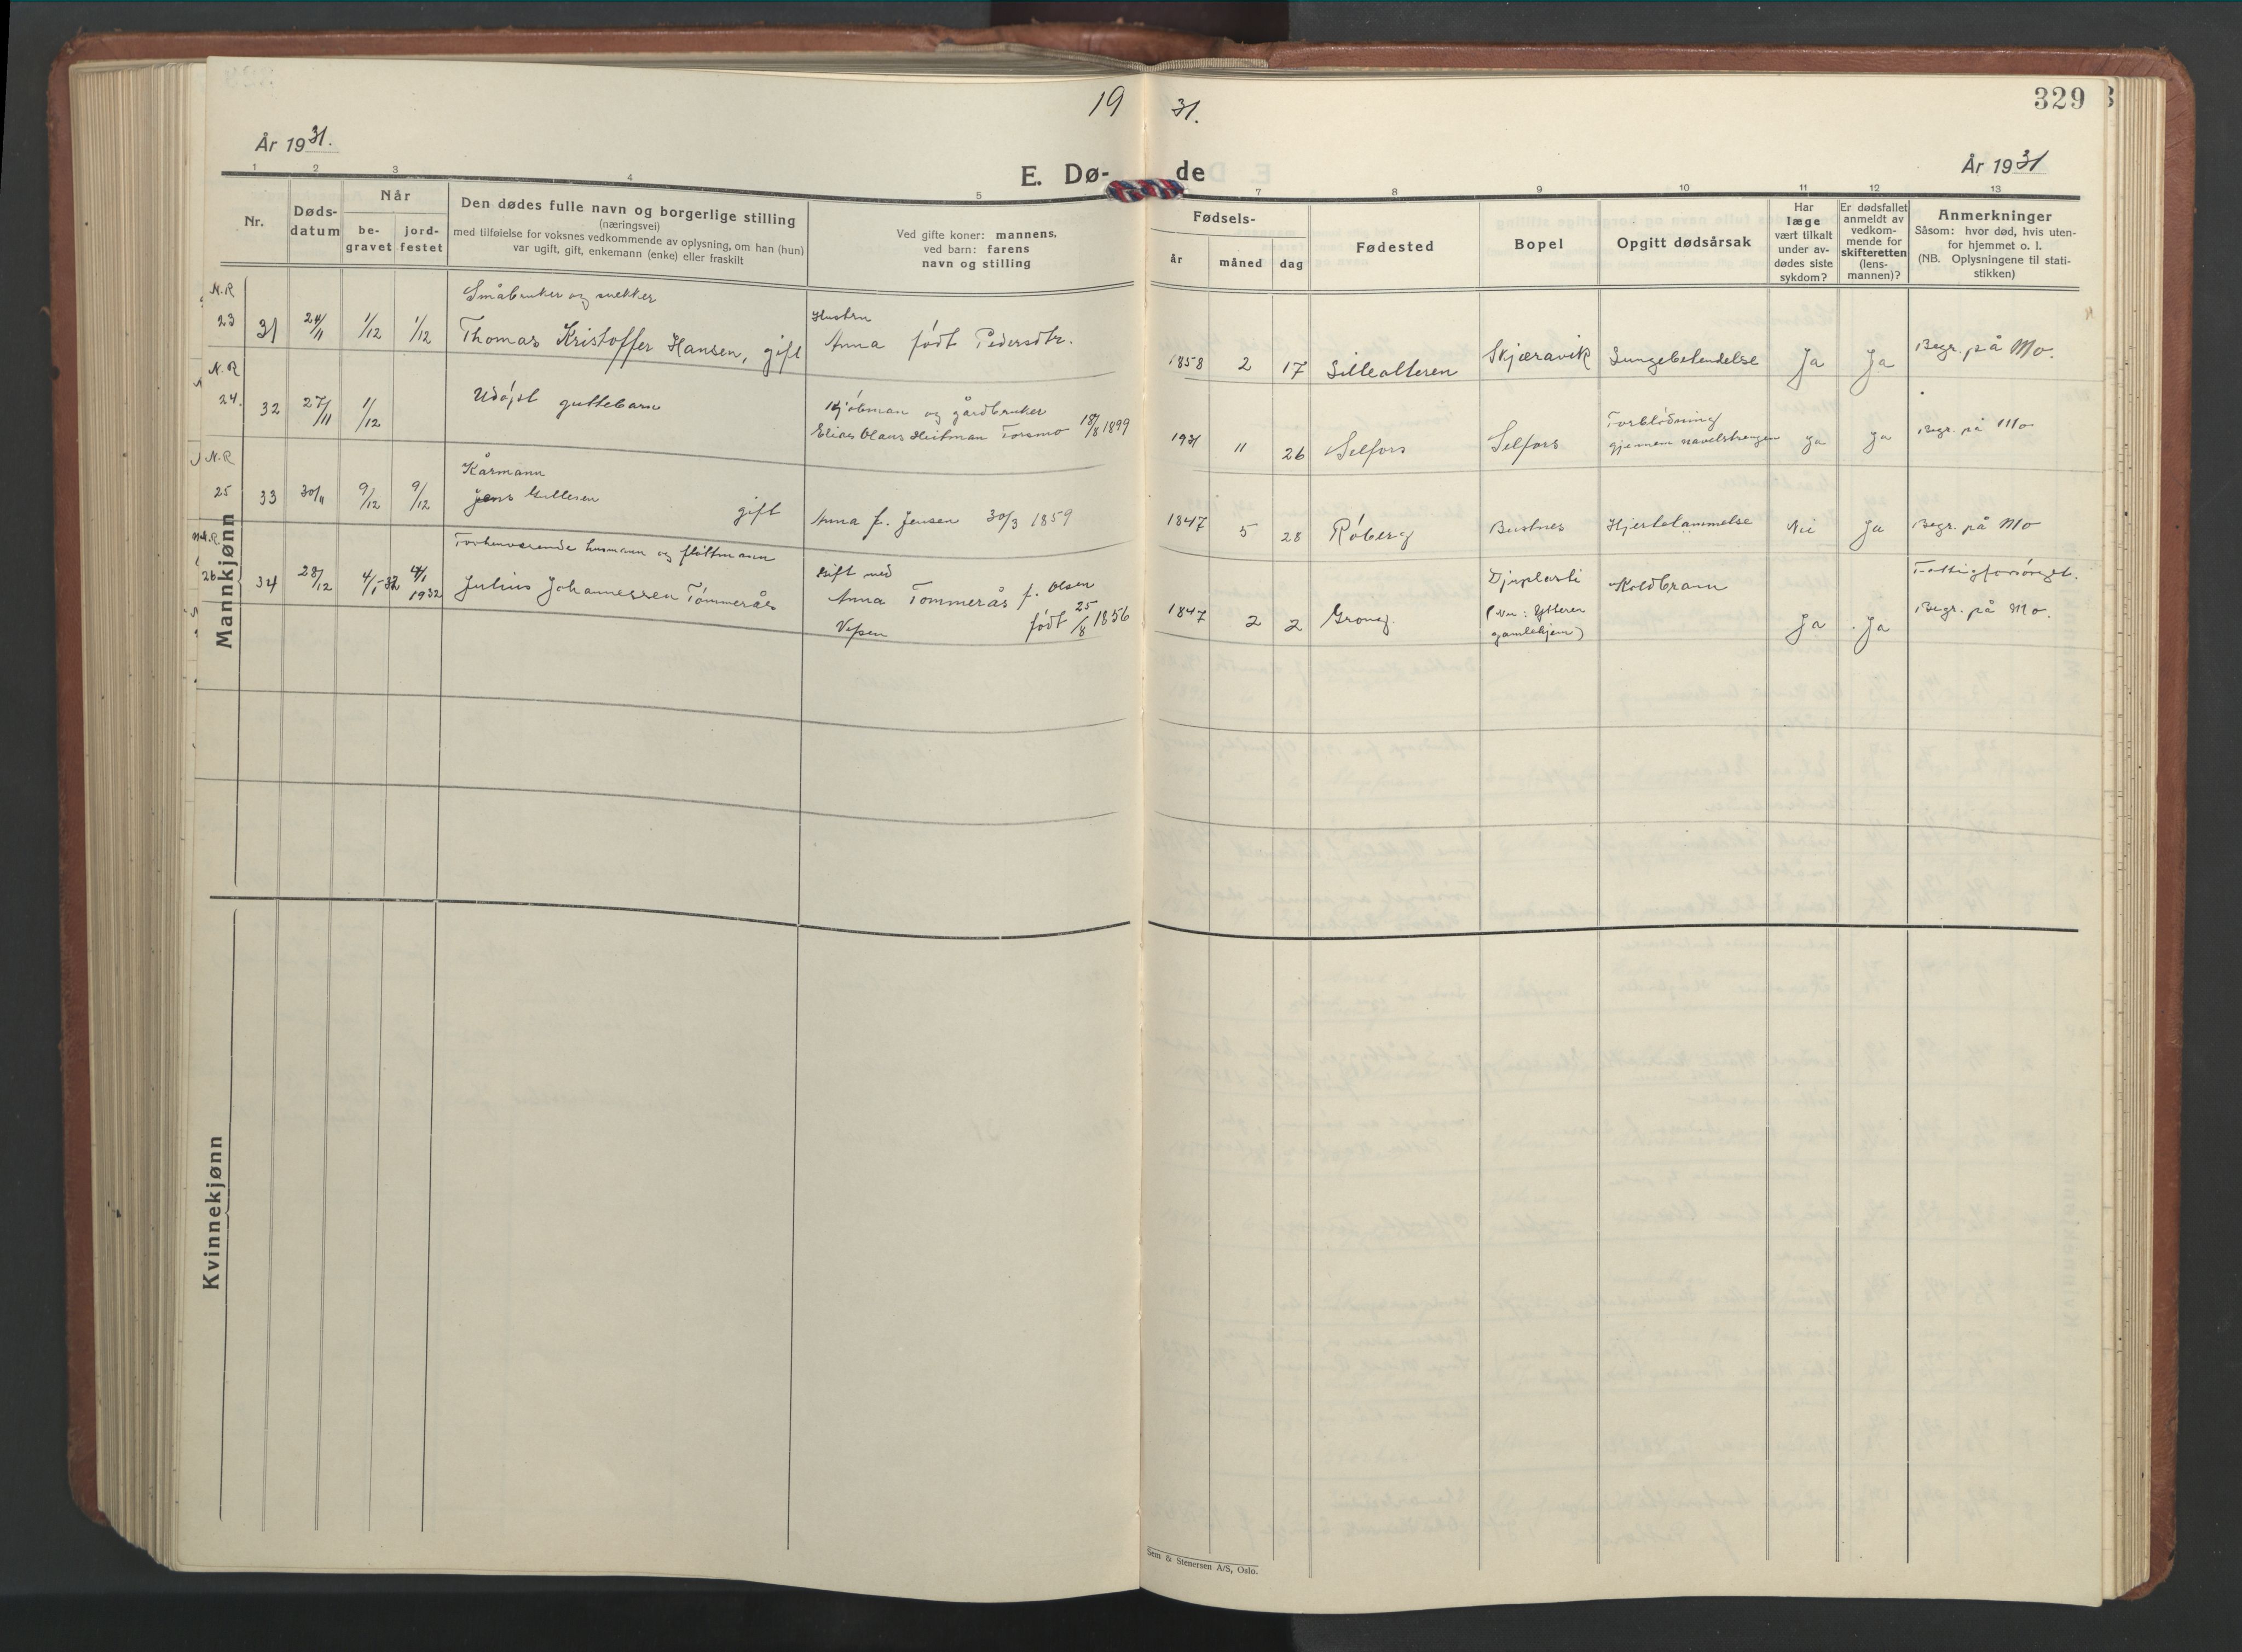 19 31.
329
År 1931.
År 1931
E. Døde
1 2 3 4 5 7 8 9 10 11 12 13
Nr.
Døds-
datum
Når
be-
gravet
jord-
festet
Den dødes fulle navn og borgerlige stilling
(næringsvei)
med tilføielse for voksnes vedkommende av oplysning, om han (hun)
var ugift, gift, enkemann (enke) eller fraskilt
Ved gifte koner: mannens,
ved barn: farens
navn og stilling
Fødsels-
år
måned
dag
Fødested
Bopel
Opgitt dødsårsak
Har
læge
vært tilkalt
under av-
dødes siste
sykdom?
Er dødsfallet
anmeldt av
vedkom-
mende for
skifteretten
(lens-
mannen)?
Anmerkninger
Såsom: hvor død, hvis uten-
for hjemmet o. l.
(NB. Oplysningene til stati-
stikken)
Mannkjønn
N.R
23 31 24/11 1/12 1/12
Småbruker og snekker
Thomas Kristoffer Hansen, gift
Hustru
Anna født Pedersdtr.
1858 2 17 Skjæravik Lungebetendelse Ja Ja Begr. på Mo.
N.R
24. 32 27/11 1/12
Udøpt guttebarn
Kjøbman og gårdbruker
Elias Olaus Heitman Forsmo 18/8 1899
1931 11 26 Selfors Selfors
Forblødning
gjennem navelstrengen
Ja Ja Begr. på Mo
N.R
25 33 30/11 9/12 9/12
Kårmann
Jens gift
Anna f. Jensen 30/3 1859
1847 5 28 Røberg Bustnes Hjertelammelse Nei Ja Begr. på Mo
N.R
26 34 28/12 4/1-32 4/1 1932
Forhenværende husmann og fløttmann
Julius Johannessen Tømmerås
Gift med
Anna Tømmerås f. Olsen
Vefsen født 25/8 1856
1847 2 2 Grong.
Djuplasti
(Nu: Ytteren
gamlehjem)
Koldbrann Ja Ja
Fattigforsørget.
Begr. på Mo.
Kvinnekjønn
Sem & Stenersen A/S, Oslo.